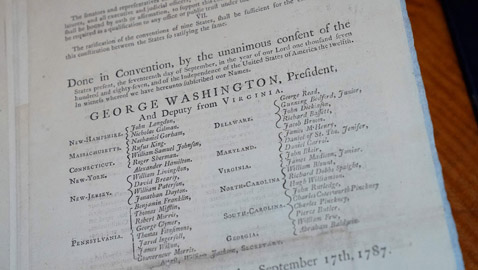 The Senators and representatives
and all executive and judicial officers,
shall be bound by oath or affirmation, to support this
be required as a qualification to any office or public trust under
VII.
The ratification of the conventions of nine States, shall be sufficient for the
this constitution between the States so ratifying the same.
Done in Convention, by the unanimous consent of the
States present, the seventeenth day of September, in the year of our Lord one thousand seven
hundred and eighty-seven, and of the Independence of the United States of America the twelfth.
In witness whereof we have hereunto subscribed our Names.
GEORGE WASHINGTON, President,
And Deputy from VIRGINIA.
NEW-HAMPSHIRE. John Langdon,
Nicholas Gilman.
MASSACHUSETTS. Nathaniel Gorham,
Rufus King.
CONNECTICUT. William Samuel Johnson,
Roger Sherman.
NEW-YORK. Alexander Hamilton.
NEW-JERSEY. William Livingston,
David Brearly,
William Paterson,
Jonathan Dayton.
PENNSYLVANIA. Benjamin Franklin,
Thomas Mifflin,
Robert Morris,
George Clymer,
Thomas Fitzsimons,
Jared Ingersoll,
James Wilson,
Gouverneur Morris.
DELAWARE. George Read,
Gunning Bedford, Junior,
John Dickinson,
Richard Bassett,
Jacob Broom.
MARYLAND. James M'Henry,
Daniel of St. Tho. Jenifer,
Daniel Carrol.
VIRGINIA. John Blair,
James Madison, Junior.
NORTH-CAROLINA. William Blount,
Richard Dobbs Spaight,
Hugh Williamson.
SOUTH-CAROLINA. John Rutledge,
Charles Cotesworth Pinckney
Charles Pinckney,
Pierce Butler.
GEORGIA. William Few,
Abraham Baldwin.
Attest, William Jackson, SECRETARY.
September 17th, 1787.